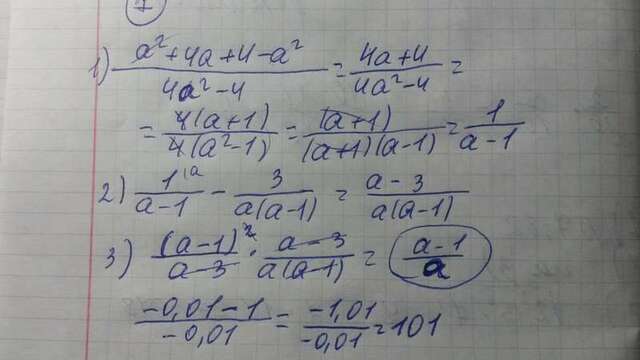 7
1) (a²+4a+4-a²)/(4a²-4) = (4a+4)/(4a²-4) =
= 4(a+1)/4(a²-1) = (a+1)/(a+1)(a-1) = 1/(a-1)
2) 1^(a/(a-1) - 3/a(a-1) = (a-3)/a(a-1)
3) (a-1)²/(a-3) · (a-3)/a(a-1) = (a-1)/a
(-0,01-1)/(-0,01) = (-1,01)/(-0,01) = 101